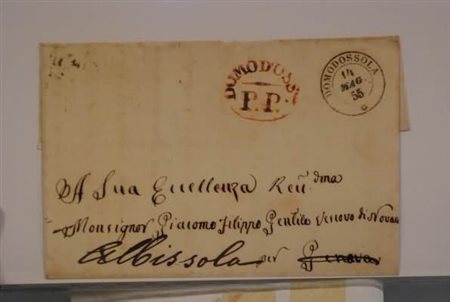 DOMODOSSA
P.P.
DOMODOSSOLA
14
MAG
55
A Sua Eccellenza Reu.dma
Monsignor Giacomo Filippo Gentile Vescovo di Novara
Albissola per Genova